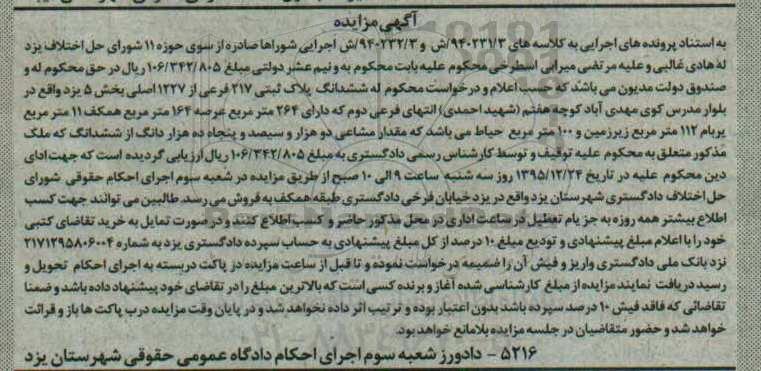 آگهی مزایده
به استناد پرونده های اجرایی به کلاسه های ۹۴۰۲۳۱/۳/ش و ۹۴۰۲۳۲/۳/ش اجرایی شوراها صادره از سوی حوزه ۱۱ شورای حل اختلاف یزد
له هادی غالبی و علیه مرتضی میرابی اسطرخی محکوم علیه بابت محکوم به و نیم عشر دولتی مبلغ ۱۰۶/۳۴۲/۸۰۵ ریال در حق محکوم له و
صندوق دولت مدیون می باشد که حسب اعلام و درخواست محکوم له ششدانگ پلاک ثبتی ۲۱۷ فرعی از ۱۲۲۷ اصلی بخش ۵ یزد واقع در
بلوار مدرس کوی مهدی آباد کوچه هفتم (شهید احمدی) انتهای فرعی دوم که دارای ۲۶۴ متر مربع عرصه ۱۶۴ متر مربع همکف ۱۱ متر مربع
پربام ۱۱۲ متر مربع زیرزمین و ۱۰۰ متر مربع حیاط می باشد که مقدار مشاعی دو هزار و سیصد و پنجاه ده هزار دانگ از ششدانگ که ملک
مذکور متعلق به محکوم علیه توقیف و توسط کارشناس رسمی دادگستری به مبلغ ۱۰۶/۳۴۲/۸۰۵ ریال ارزیابی گردیده است که جهت ادای
دین محکوم علیه در تاریخ ۱۳۹۵/۱۲/۲۴ روز سه شنبه ساعت ۹ الی ۱۰ صبح از طریق مزایده در شعبه سوم اجرای احکام حقوقی شورای
حل اختلاف دادگستری شهرستان یزد واقع در یزد خیابان فرخی دادگستری طبقه همکف به فروش می رسد. طالبین می توانند جهت کسب
اطلاع بیشتر همه روزه به جز یام تعطیل در ساعت اداری در محل مذکور حاضر و کسب اطلاع کنند و در صورت تمایل به خرید تقاضای کتبی
خود را با اعلام مبلغ پیشنهادی و تودیع مبلغ ۱۰ درصد از کل مبلغ پیشنهادی به حساب سپرده دادگستری یزد به شماره ۲۱۷۱۲۹۵۸۰۶۰۰۴
نزد بانک ملی دادگستری واریز و فیش آن را ضمیمه درخواست نموده و تا قبل از ساعت مزایده در پاکت دربسته به اجرای احکام تحویل و
رسید دریافت نمایند مزایده از مبلغ کارشناسی شده آغاز و برنده کسی است که بالاترین مبلغ را در تقاضای خود پیشنهاد داده باشد و ضمنا
تقاضائی که فاقد فیش ۱۰ درصد سپرده باشد بدون اعتبار بوده و ترتیب اثر داده نخواهد شد و در پایان وقت مزایده درب پاکت ها باز و قرائت
خواهد شد و حضور متقاضیان در جلسه مزایده بلامانع خواهد بود.
۵۲۱۶ - دادورز شعبه سوم اجرای احکام دادگاه عمومی حقوقی شهرستان یزد